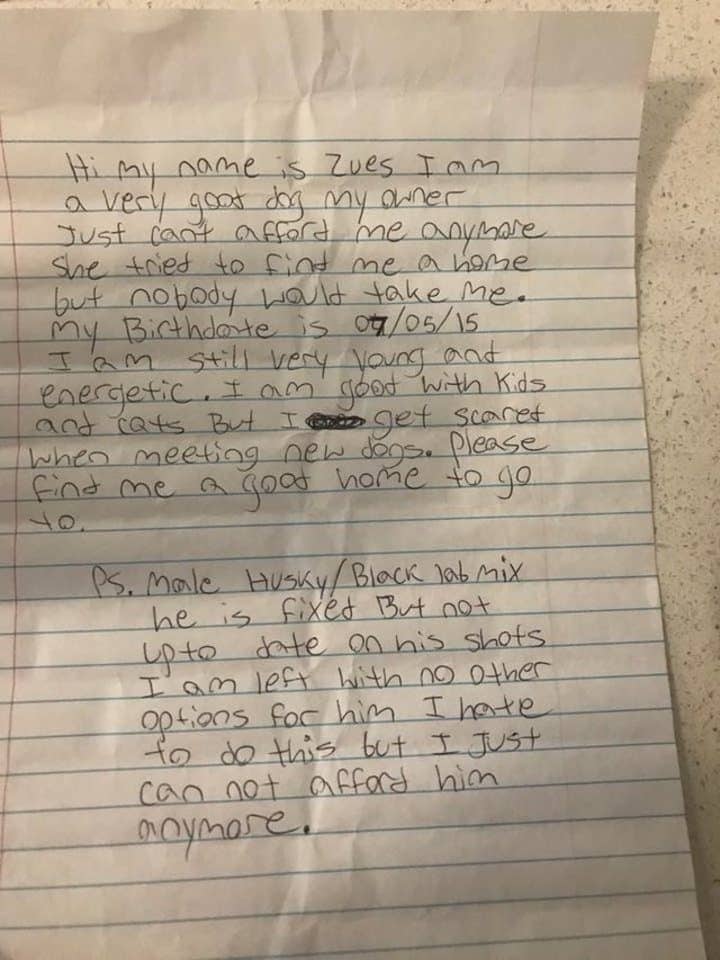 Hi my name is Zues I am
a very good dog my owner
Just can't afford me anymore
She tried to find me a home
but nobody would take me.
My Birthdate is 07/05/15
I am still very young and
energetic. I am good with Kids
and cats But I get scared
when meeting new dogs. Please
find me a good home to go
to.
Ps. Male Husky/Black lab mix
he is fixed But not
up to date on his shots
I am left with no other
options for him I hate
to do this but I Just
can not afford him
anymore.